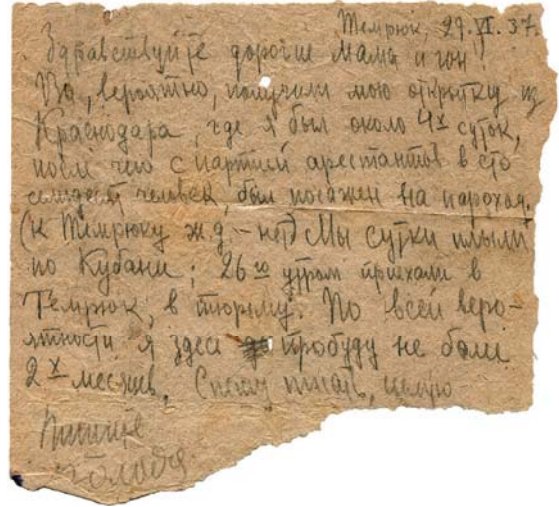 Темрюк, 29.VI.37.
Здравствуйте дорогие мама и
Вы, вероятно, получили мою открытку из
Краснодара, где я был около 4х суток,
после чего с партией арестантов в сто
семьдесят человек, был посажен на пароход.
(К Темрюку ж.д. – нет) Мы сутки плыли
по Кубани; 26го утром приехали в
Темрюк, в тюрьму. По всей веро-
ятности я здесь пробуду не более
2х месяцев. Спешу писать, целую
Пишите